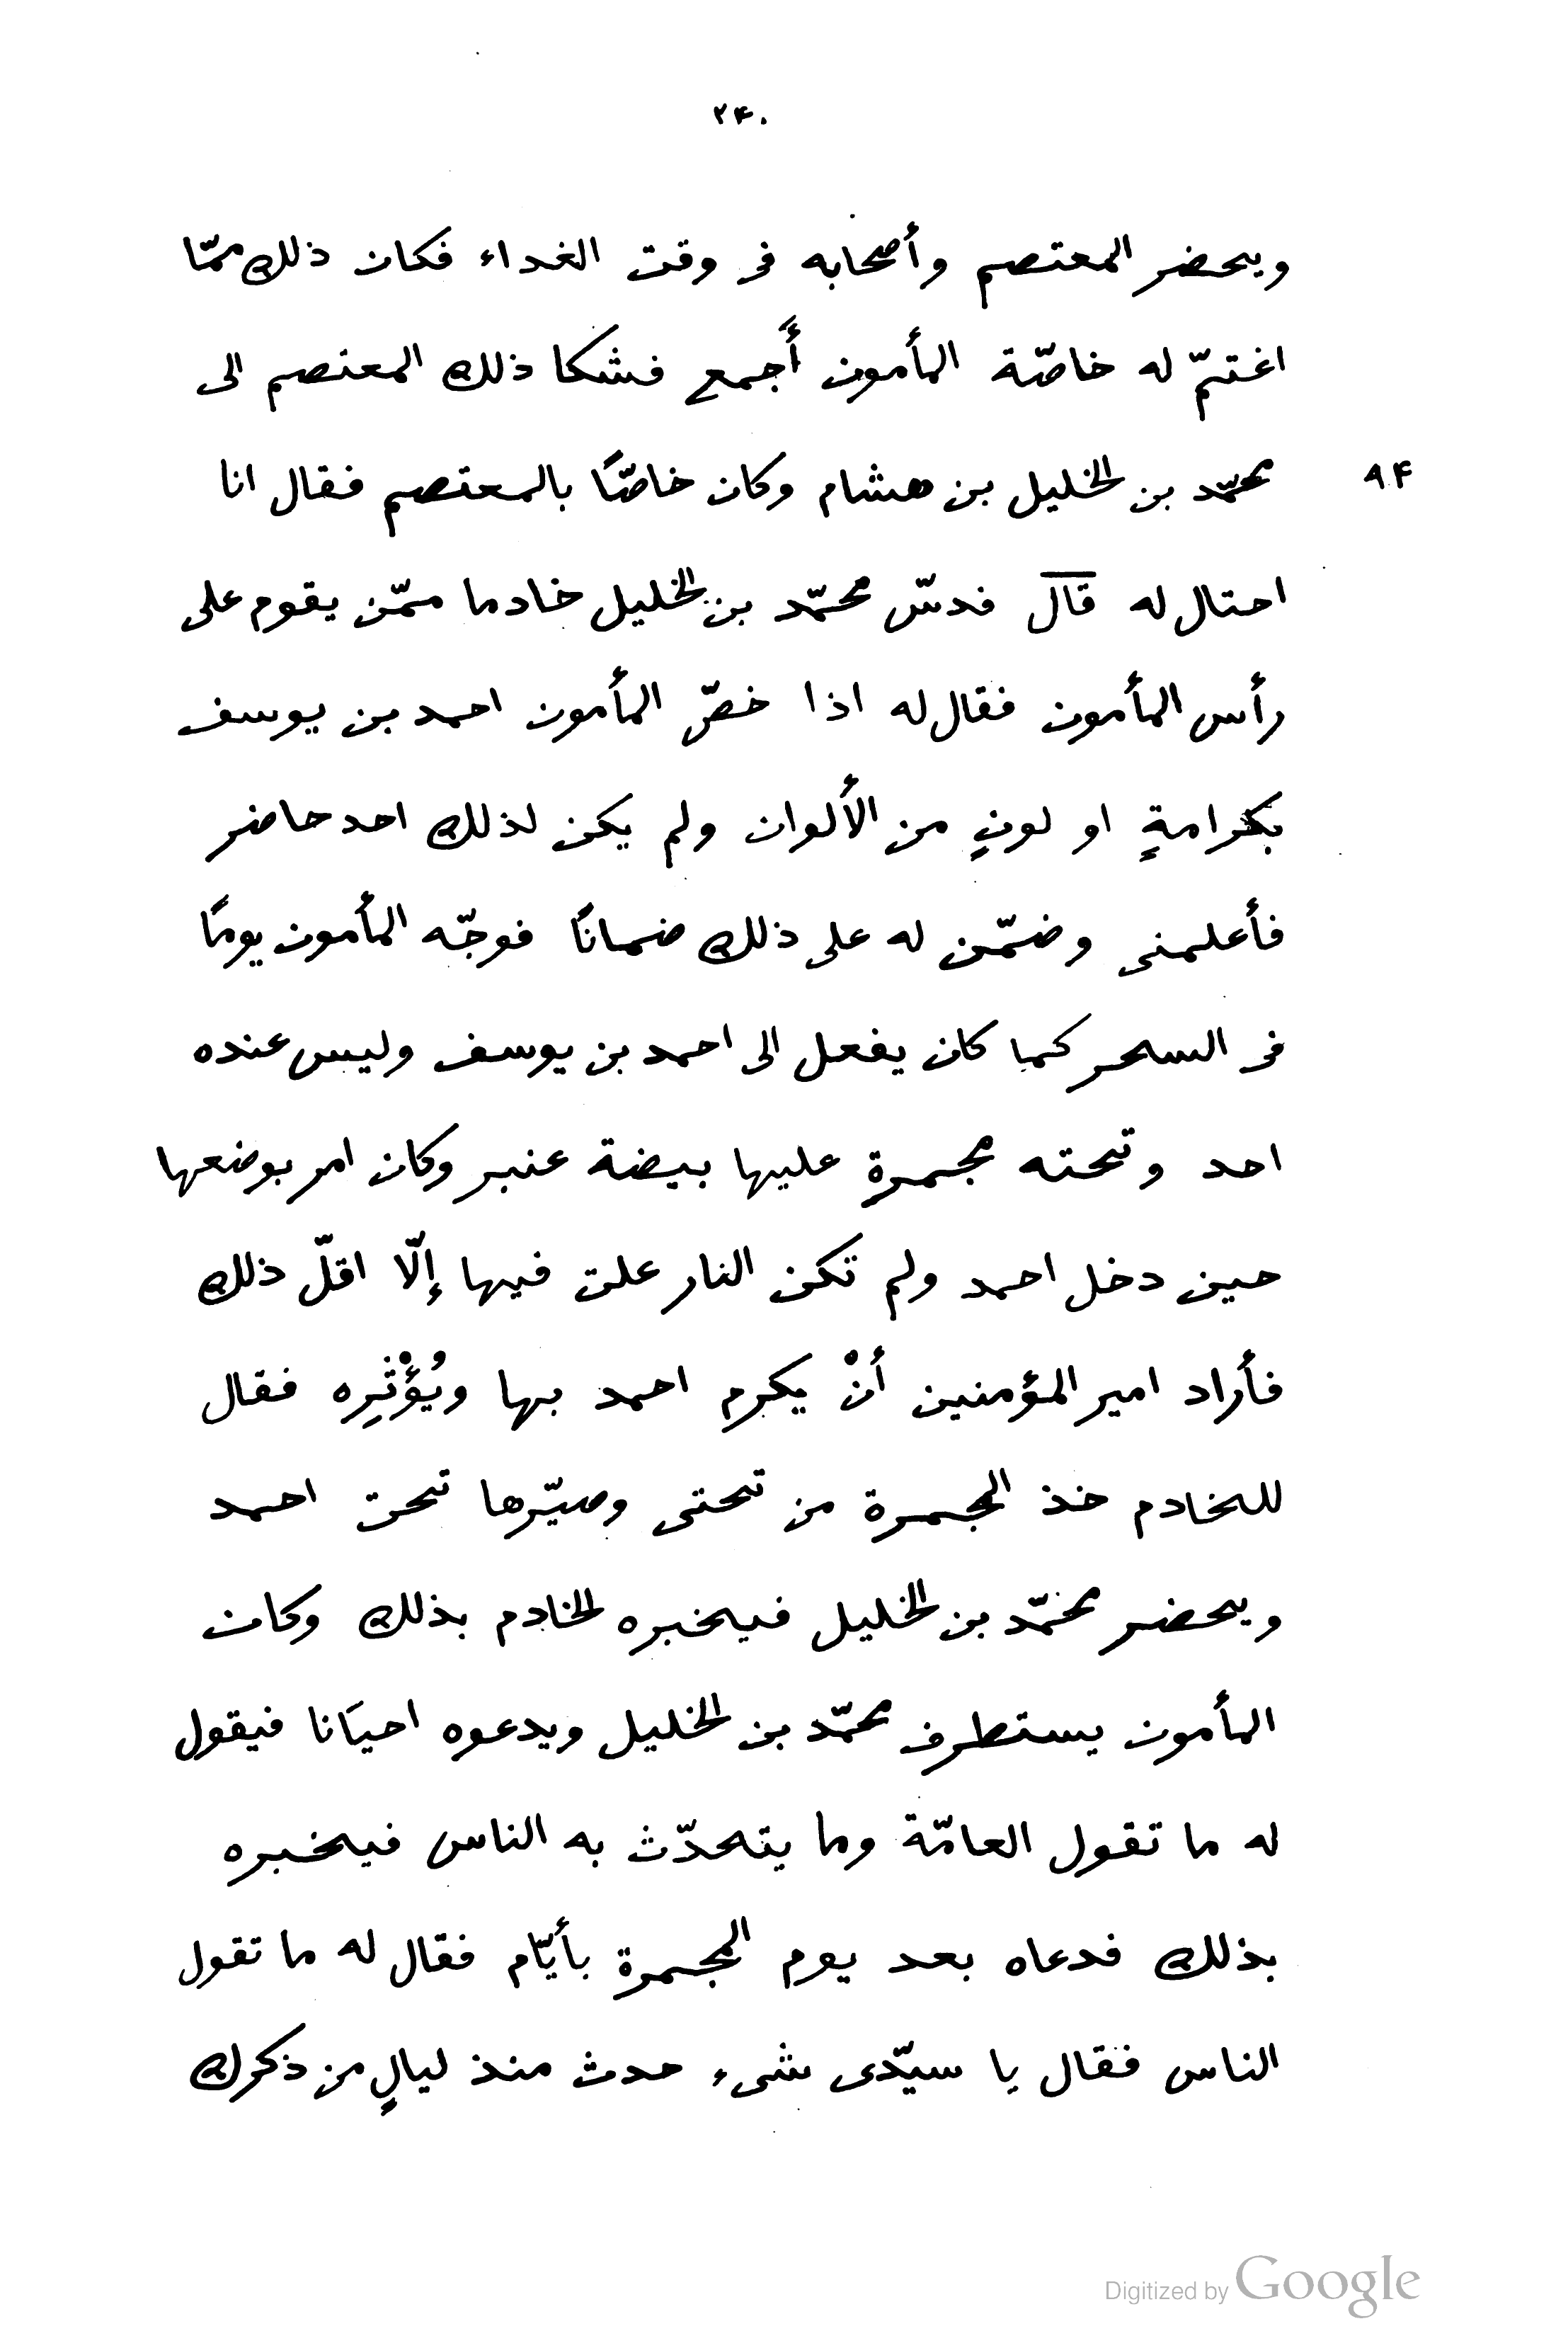 ٢۴٠
ويحضر المعتصم وأصحابه فى وقت الغداء فكان ذلك ممّا
اغتمّ له خاصّة المأمون أجمع فشكا ذلك المعتصم الى
٩۴ محمّد بن الخليل بن هشام وكان خاصًّا بالمعتصم فقال انا
احتال له قال فدسّ محمّد بن الخليل خادما ممّن يقوم على
رأس المأمون فقال له اذا خصّ المأمون احمد بن يوسف
بكرامةٍ او لونٍ من الألوان ولم يكن لذلك احد حاضر
فأعلمنى وضمّن له على ذلك ضمانًا فوجّه المأمون يومًا
فى السحر كما كان يفعل الى احمد بن يوسف وليس عنده
احد وتحته مجمرة عليها بيضة عنبر وكان امر بوضعها
حين دخل احمد ولم تكن النار علت فيها إلّا اقلّ ذلك
فأراد امير المؤمنين أنْ يكرم احمد بها ويُؤْثِره فقال
للخادم خذ المجمرة من تحتى وصيّرها تحت احمد
ويحضر محمّد بن الخليل فيخبره الخادم بذلك وكان
المأمون يستطرف محمّد بن الخليل ويدعوه احيَانا فيقول
له ما تقول العامّة وما يتحدّث به الناس فيخبره
بذلك فدعاه بعد يوم المجمرة بأيّام فقال له ما تقول
الناس فقال يا سيّدى شىء حدث منذ ليالٍ من ذكرك
Digitized by Google